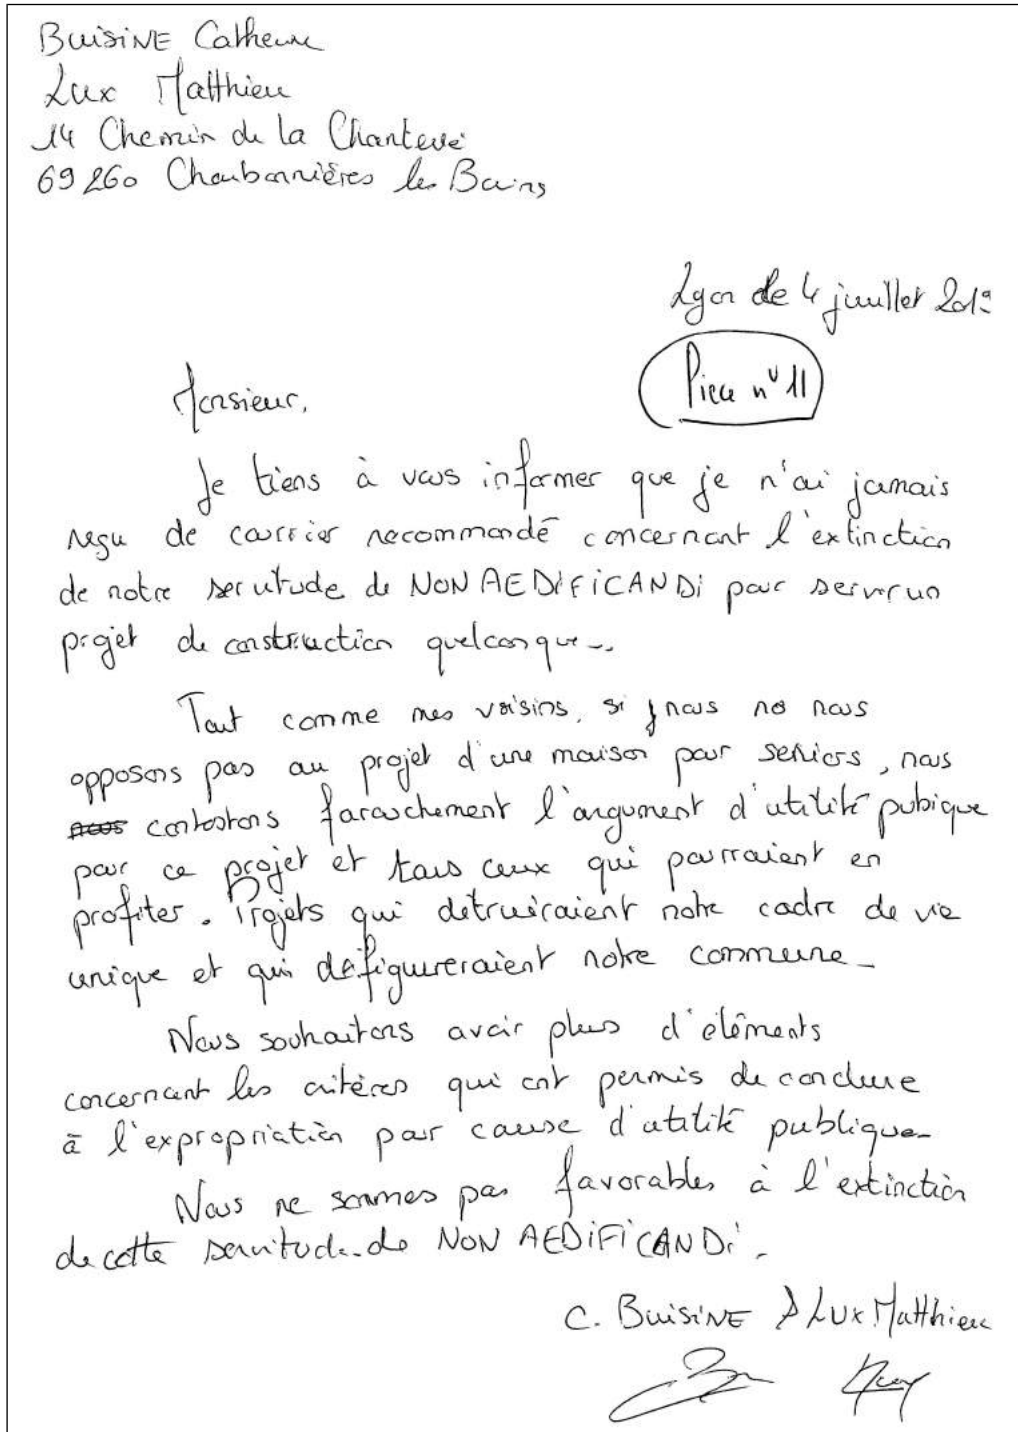 BUISINE Catherine
Lux Matthieu
14 Chemin de la Chanterie
69260 Charbonnières les Bains
Lyon le 4 juillet 2019
Pièce n° 11
Monsieur,
Je tiens à vous informer que je n'ai jamais
reçu de courrier recommandé concernant l'extinction
de notre servitude de NON AEDIFICANDI pour servir un
projet de construction quelconque...
Tout comme mes voisins, si nous ne nous
opposons pas au projet d'une maison pour seniors, nous
contestons farouchement l'argument d'utilité pubique
pour ce projet et tous ceux qui pourraient en
profiter. Projets qui detruiraient notre cadre de vie
unique et qui défigureraient notre commune.
Nous souhaitons avoir plus d'éléments
concernant les critères qui ont permis de conclure
à l'expropriation pour cause d'utilité publique.
Nous ne sommes pas favorables à l'extinction
de cette servitude de NON AEDIFICANDI.
C. BUISINE & LUX Matthieu